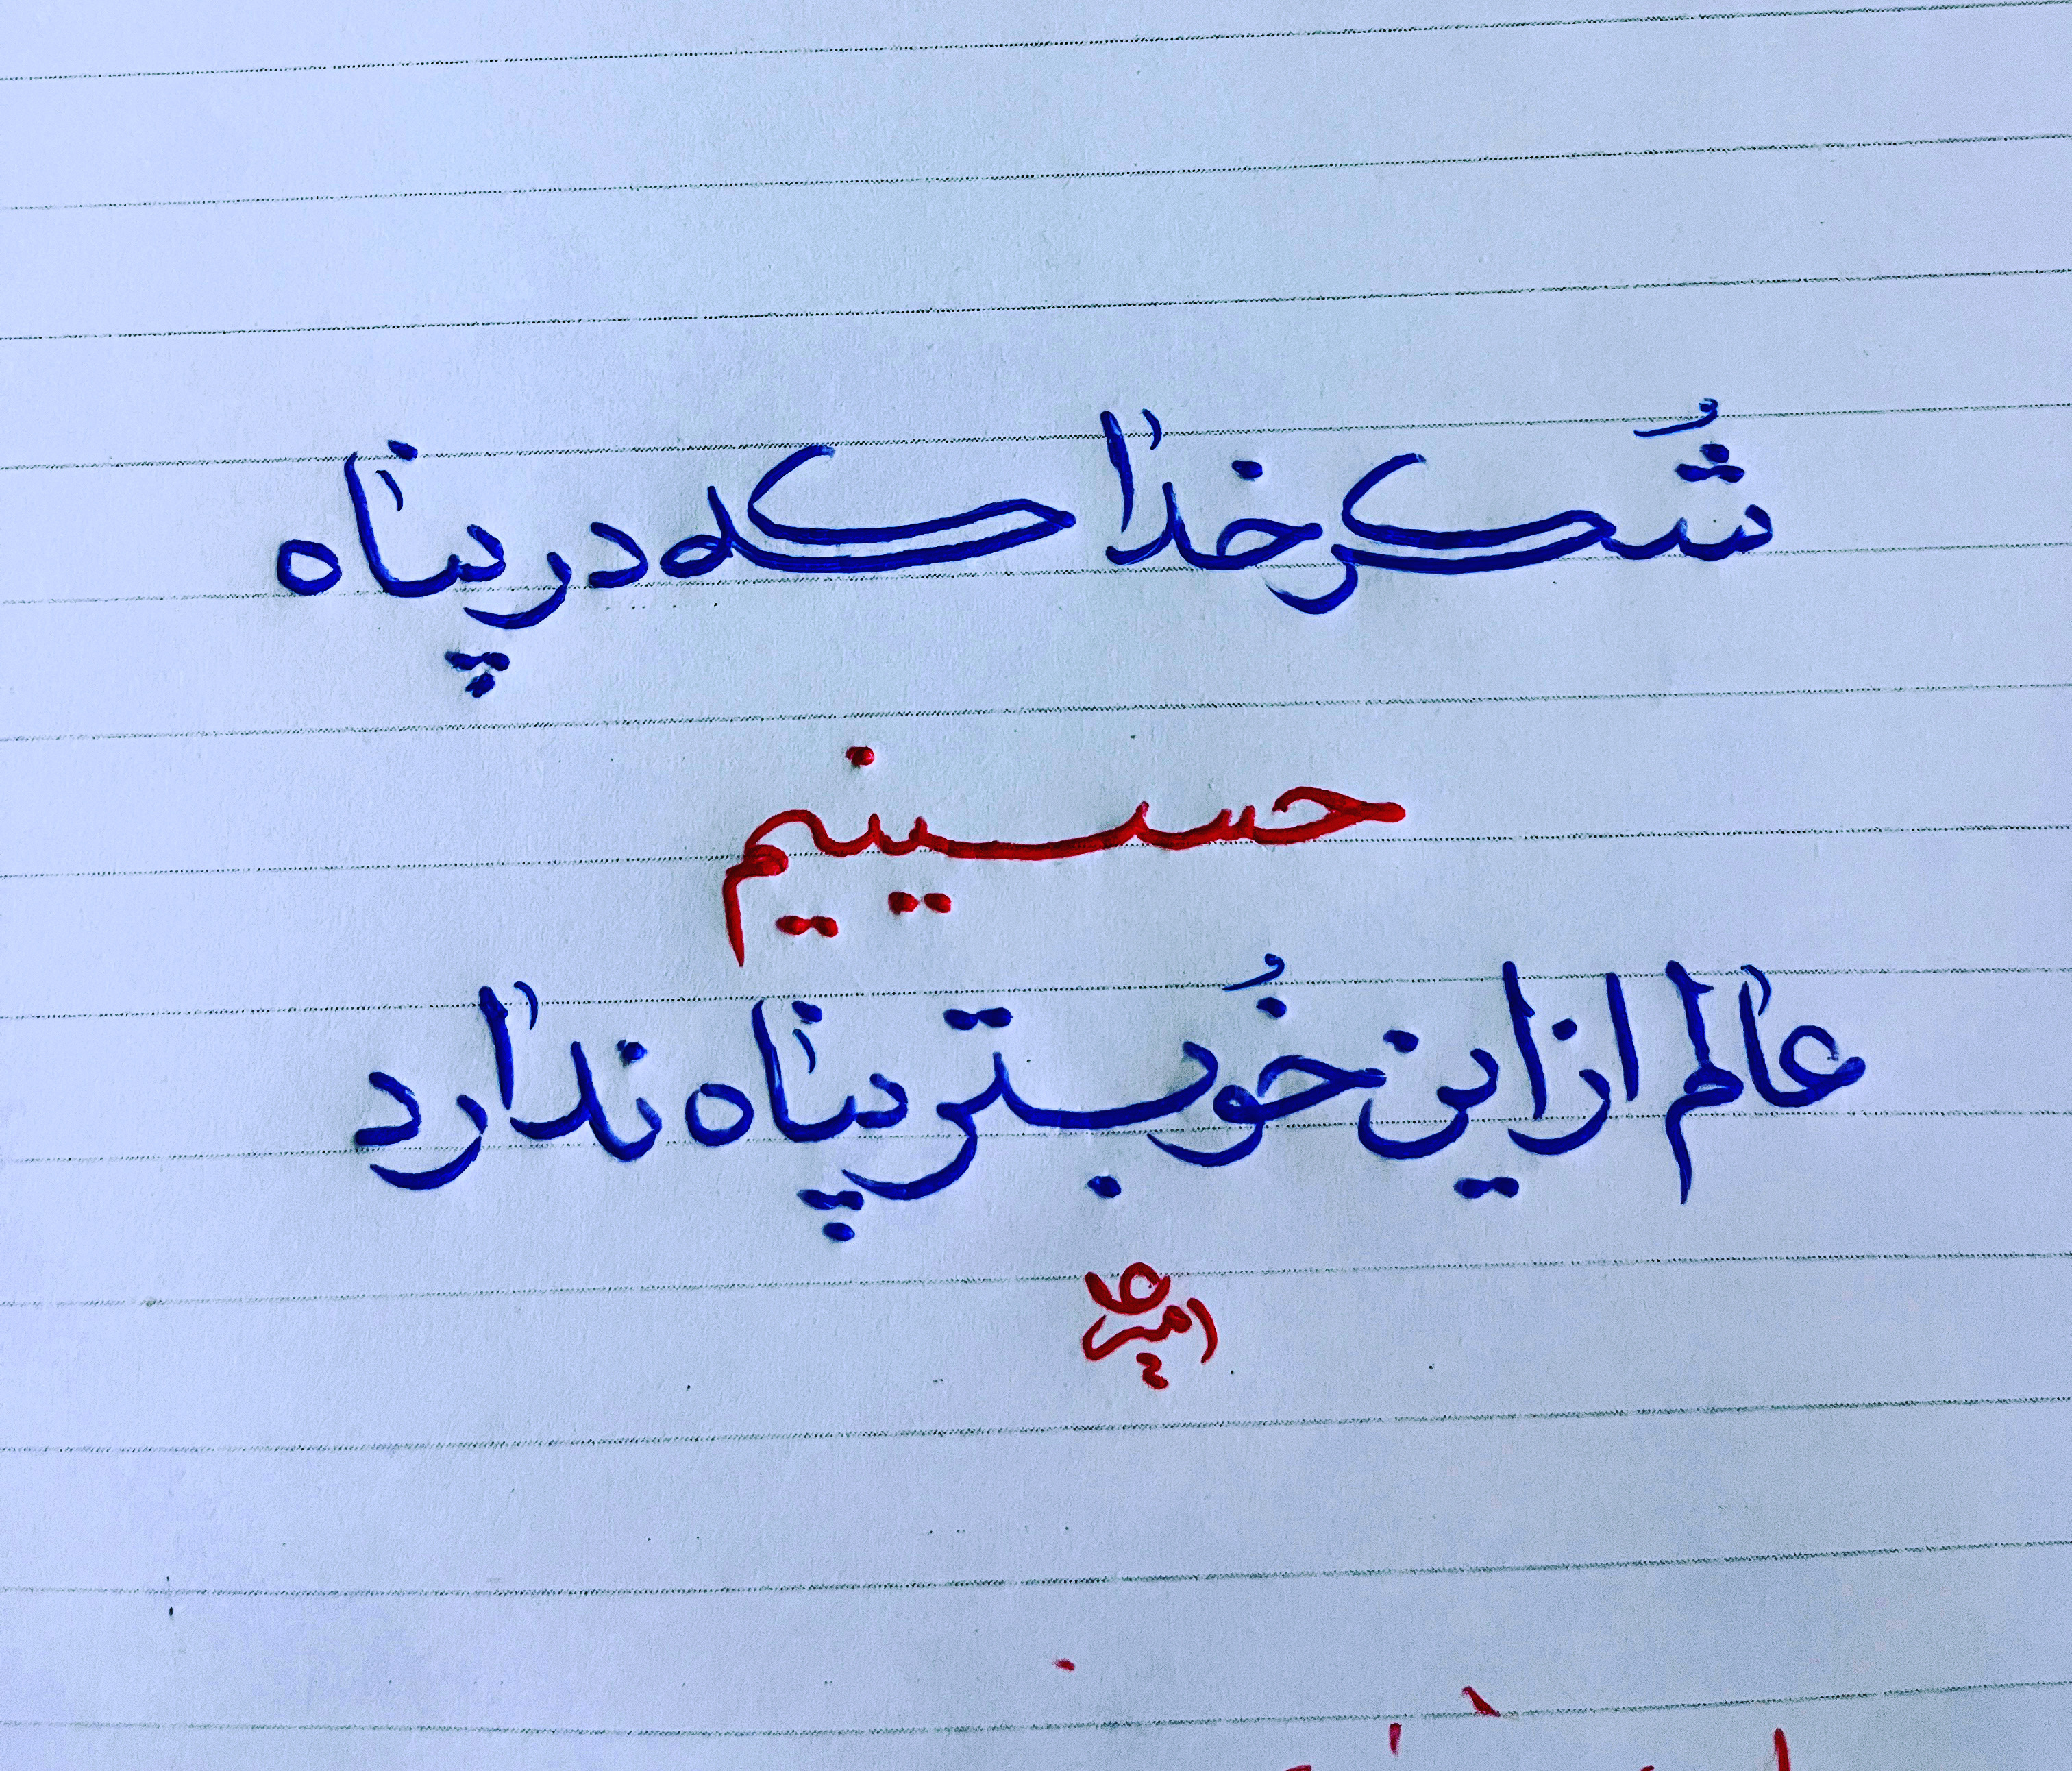 شُکر خدا که در پناه
حسینیم
عالم از این خُوبتر پناه ندارد